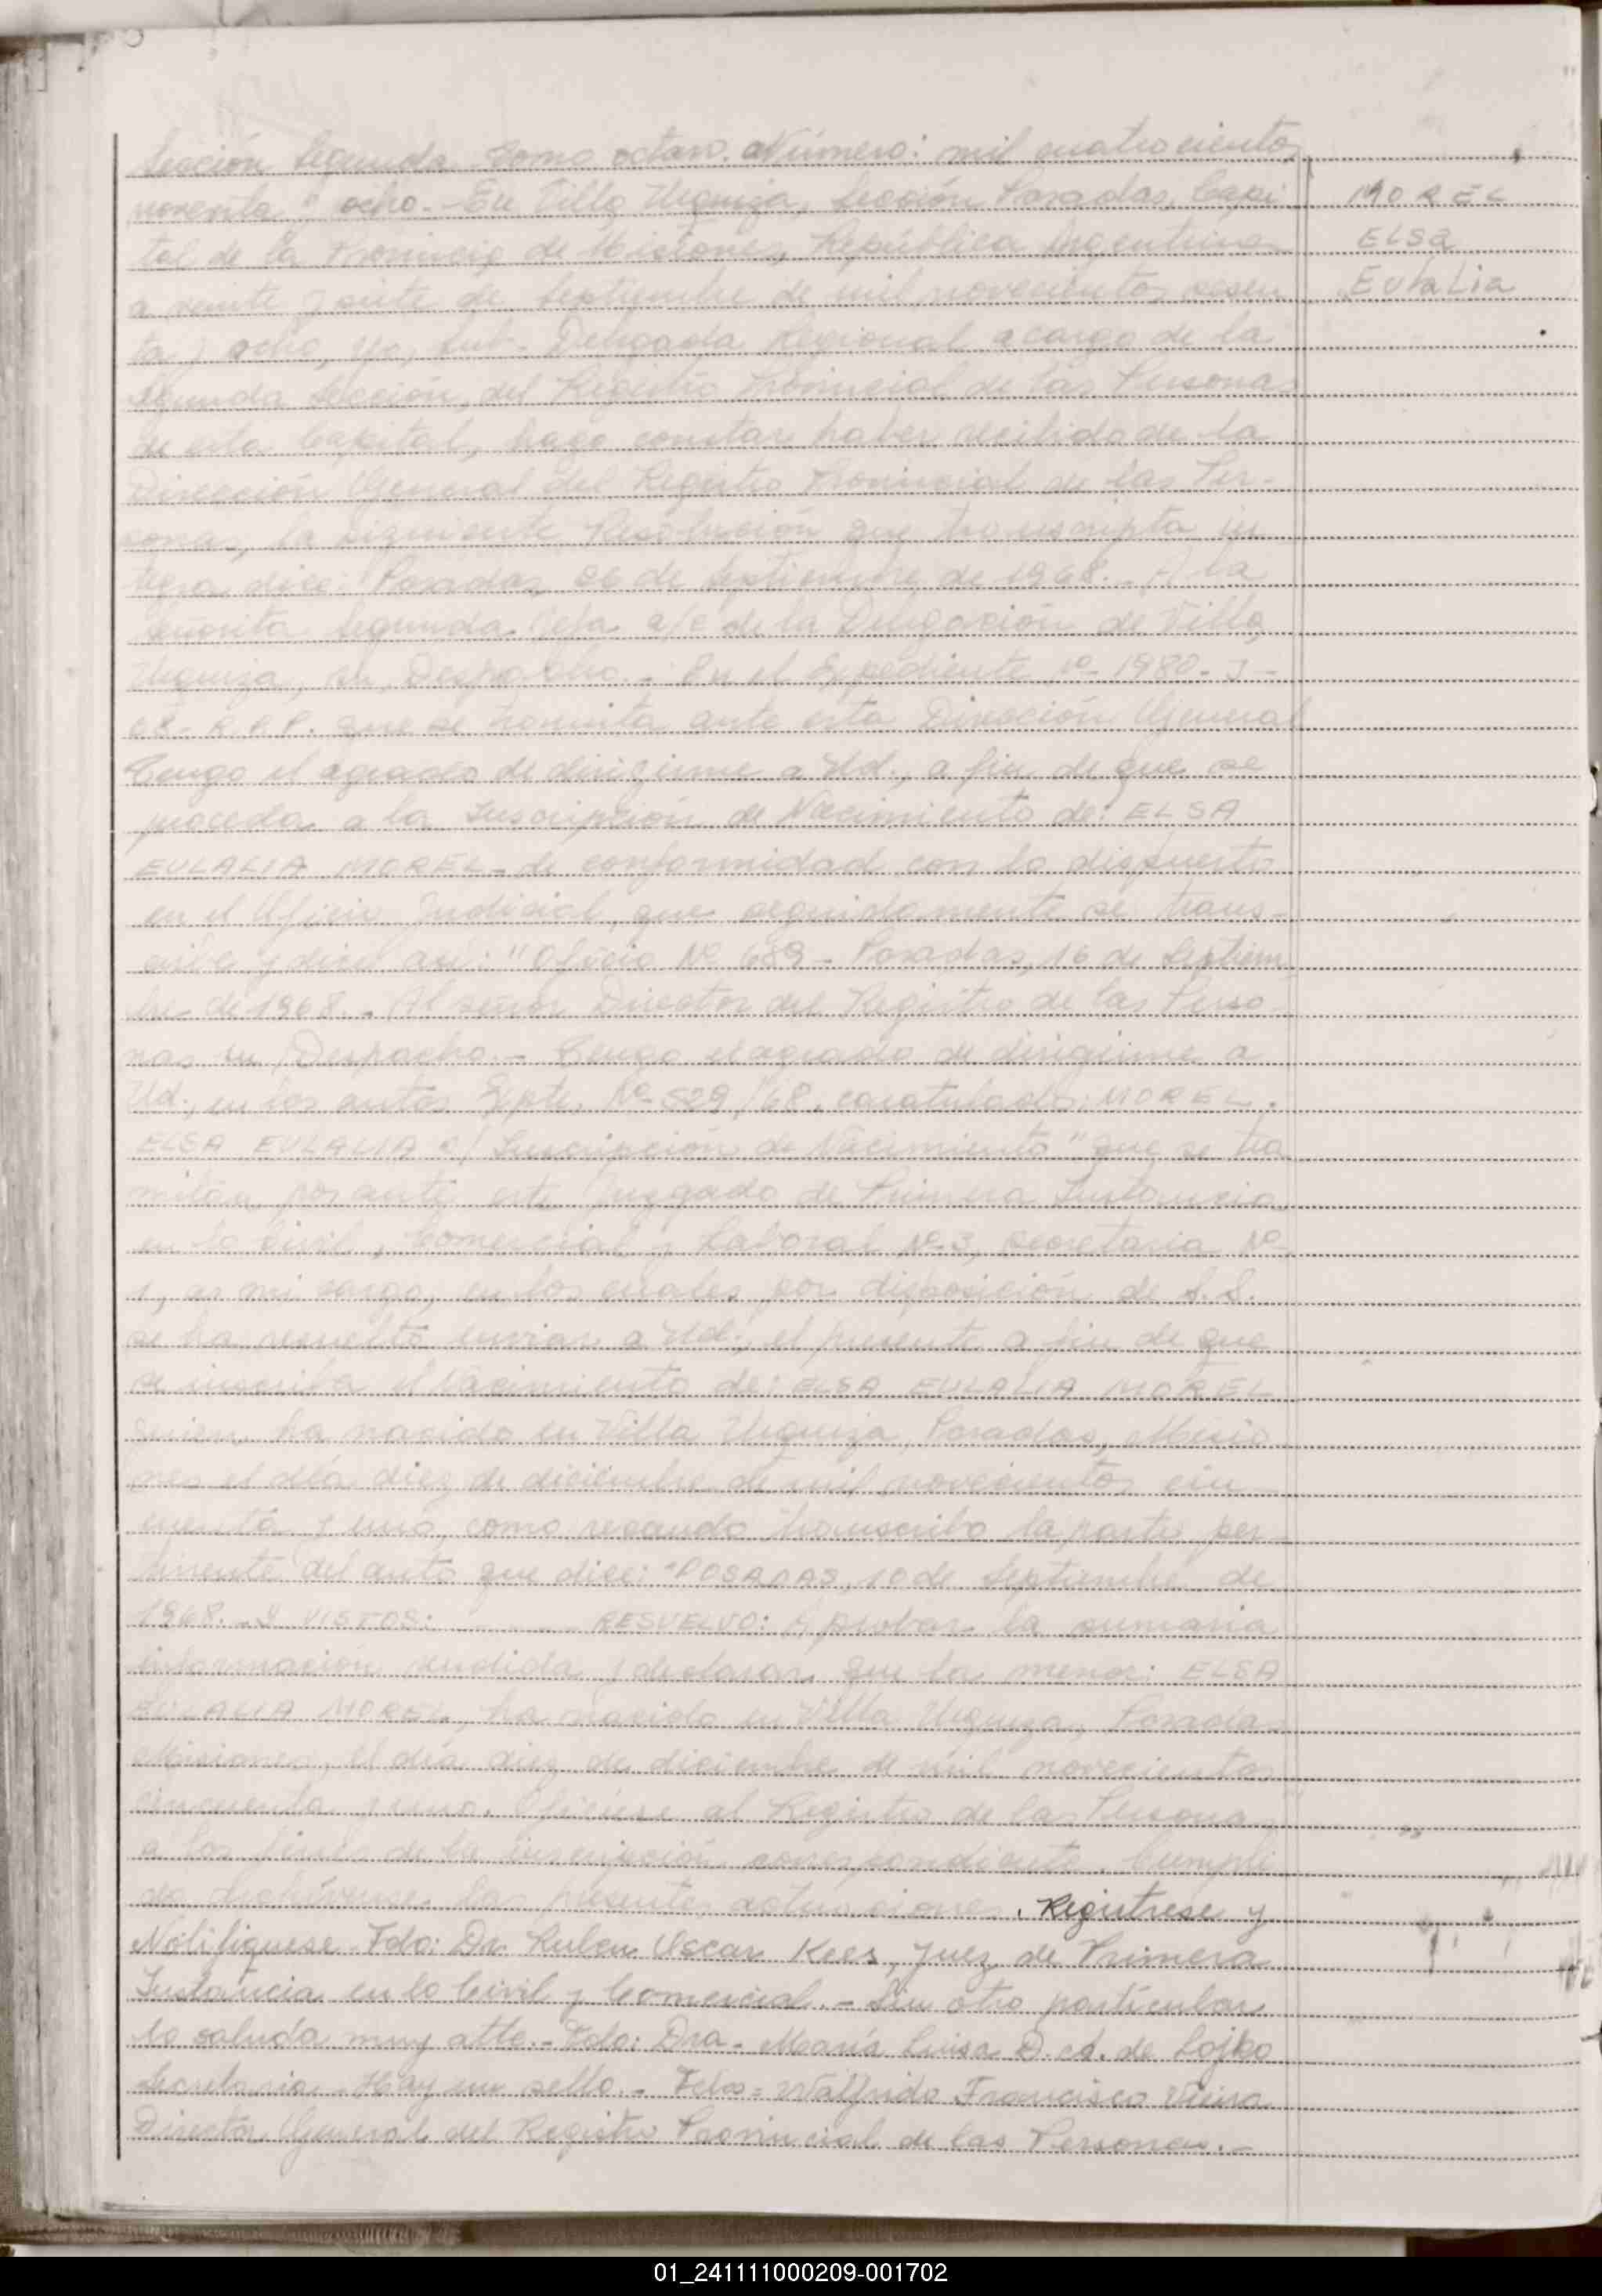 Sección Segunda Tomo octavo. Número: mil cuatrocientos
noventa y ocho.- En Villa Urquiza, Sección Posadas, Capi
tal de la Provincia de Misiones, República Argentina
a veinte y siete de Septiembre de mil novecientos sesen
ta y ocho, yo, Sub-Delegada Regional a cargo de la
Segunda Sección, del Registro Provincial de las Personas
de esta Capital, hago constar haber recibido de la
Dirección General del Registro Provincial de las Per-
sonas, la siguiente Resolución que transcripta in
tegra dice: Posadas, 26 de Septiembre de 1968.- A la
señorita Segunda Jefa a/c de la Delegación de Villa
Urquiza, su Despacho.- En el Expediente Nº 1980- J-
68- R.P.P. que se tramita ante esta Dirección General
Tengo el agrado de dirigirme a Ud., a fin de que se
proceda a la Inscripción de Nacimiento de: ELSA
EULALIA MOREL- de conformidad con lo dispuesto
en el Oficio Judicial, que seguidamente se trans-
cribe y dice así: "Oficio Nº 689- Posadas, 16 de Septiem
bre de 1968.- Al señor Director del Registro de las Perso
nas su Despacho.- Tengo el agrado de dirigirme a
Ud., en los autos Expte. Nº 529/68, caratulado: MOREL,
ELSA EULALIA s/ Inscripción de Nacimiento" que se tra
mitan por ante este Juzgado de Primera Instancia
en lo Civil, Comercial y Laboral Nº 3, secretaria Nº
1, a mi cargo, en los cuales por disposición de S.S.
se ha resuelto enviar a Ud., el presente a fin de que
se inscriba el nacimiento de: ELSA EULALIA MOREL
quien ha nacido en Villa Urquiza, Posadas, Misio
nes el día diez de diciembre de mil novecientos cin
cuenta y uno, como recaudo transcribo la parte per-
tinente del auto que dice: "POSADAS, 10 de Septiembre de
1968.- Y VISTOS: ........ RESUELVO: Aprobar la sumaria
información rendida y declarar que la menor: ELSA
EULALIA MOREL, ha nacido en Villa Urquiza, Posadas
Misiones, el día diez de diciembre de mil novecientos
cincuenta y uno. Ofíciese al Registro de las Personas
a los fines de la inscripción correspondiente. Cumpli
do archívense las presentes actuaciones. Regístrese y
Notifíquese. Fdo: Dr. Ruben Oscar Kees, Juez de Primera
Instancia en lo Civil y Comercial.- Sin otro particular
lo saluda muy atte.- Fdo: Dra. María Luisa D. A. de Lojko
Secretaria. Hay un sello.- Fdo= Walfrido Francisco Vieira
Director General del Registro Provincial de las Personas.-
MOREL
ELSA
EULALIA
01_241111000209-001702